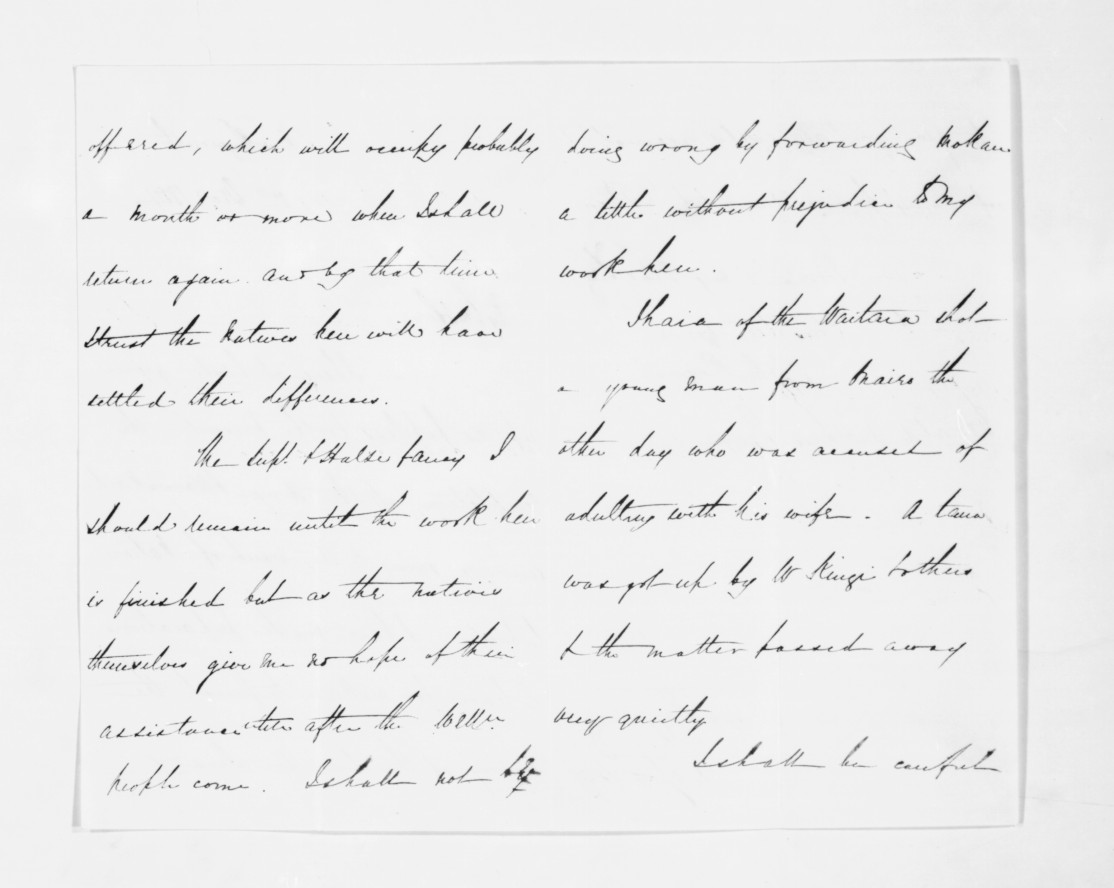 offered, which will occupy probably
a month or more when I shall
return again and by that time
I trust the Natives here will have
settled their differences.
The Supt. & Halse fancy I
should remain until the work here
is finished but as the natives
themselves give me no hope of their
assistance until after the
people come. I shall not be
doing wrong by forwarding Mokau
a little without prejudice to my
work here.
Ihaia of the Waitara shot
a young man from the
other day who was accused of
adultry with his wife. A taua
was got up by W Kingi & others
& the matter passed away
very quietly
I shall be careful